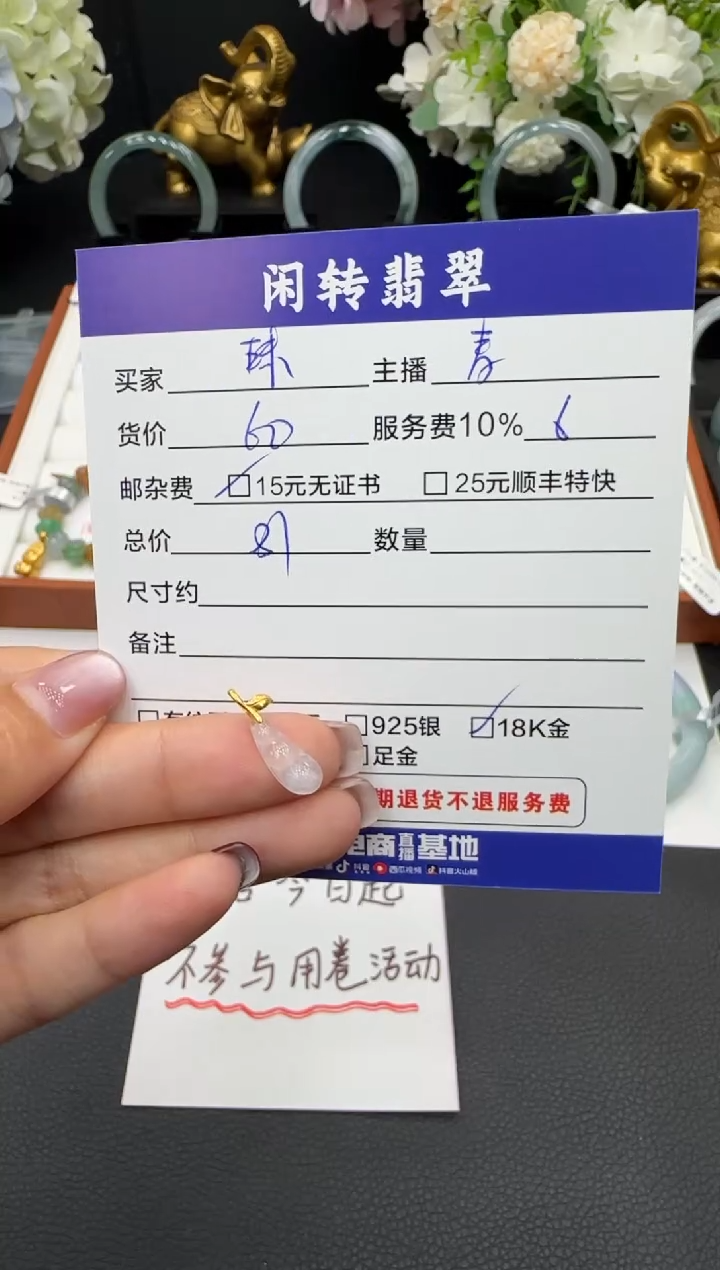 闲转翡翠
买家 珠 主播 青
货价 60 服务费10% 6
邮杂费 15元无证书 25元顺丰特快
总价 81 数量
尺寸约
备注
925银 18K金
足金
期退货不退服务费
电商直播基地
抖音 西瓜视频 抖音火山版
今日起
不参与用卷活动